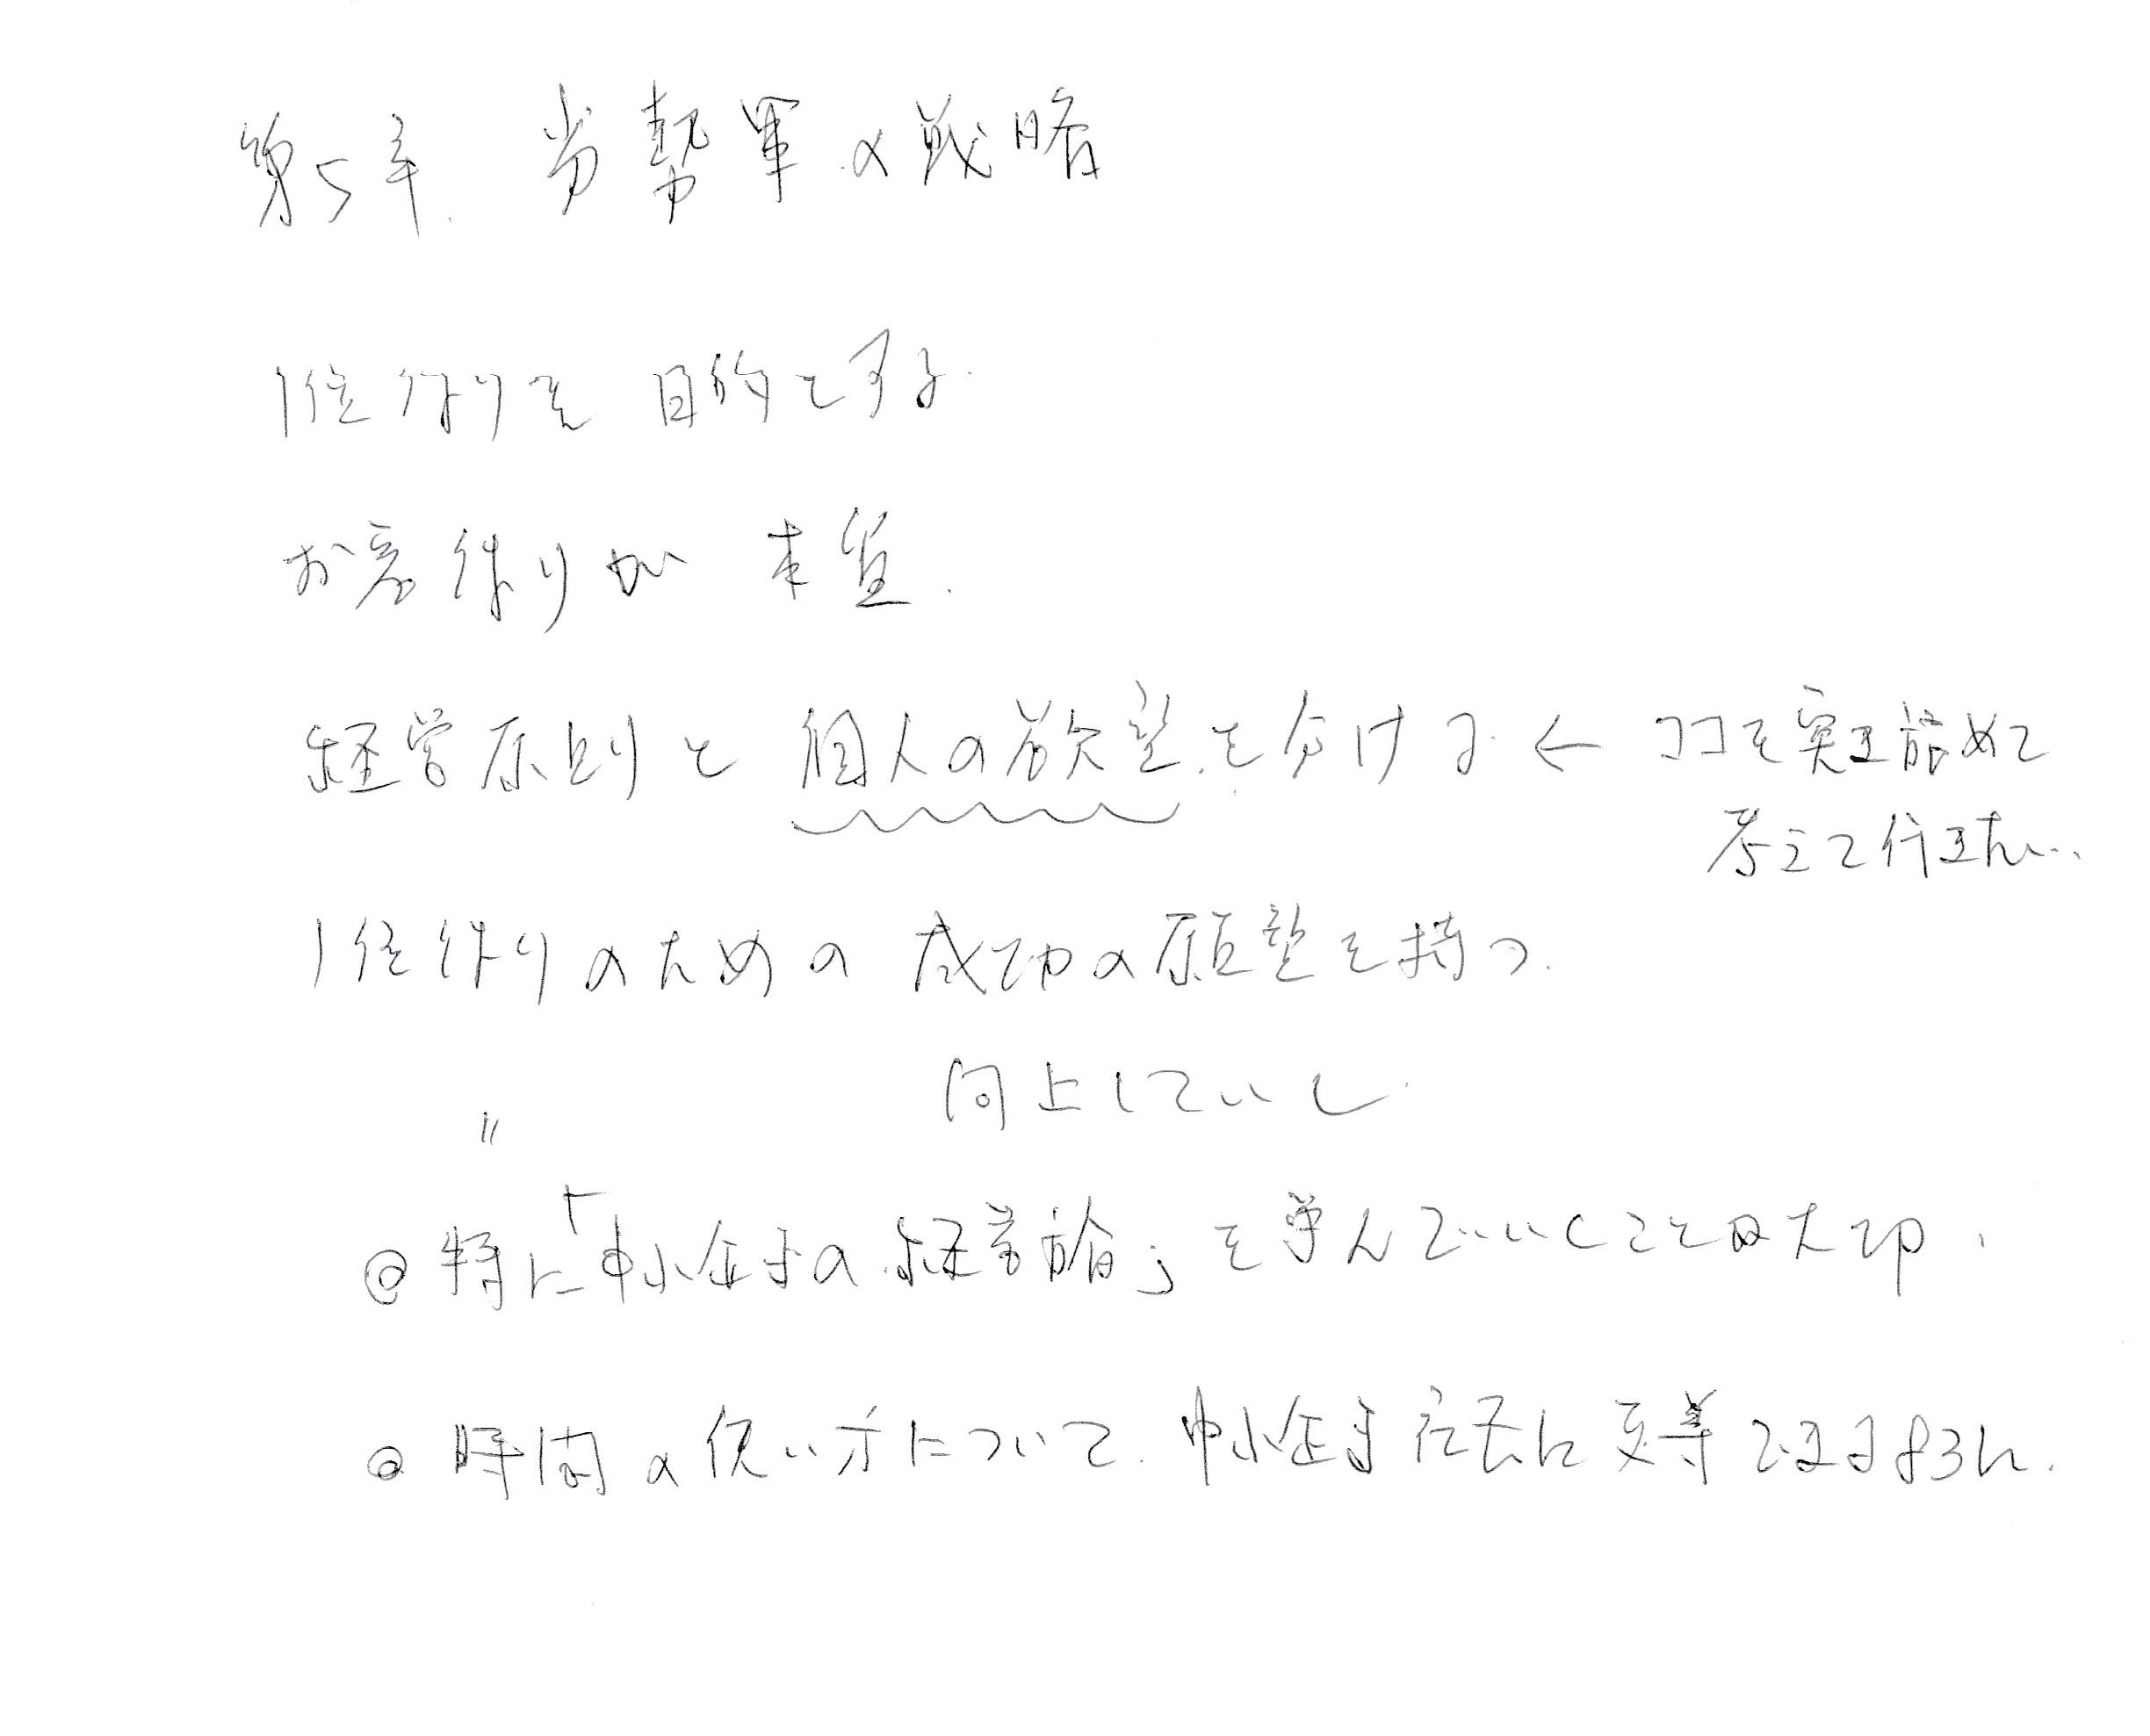 第5章. 劣勢軍の戦略
1位作りを目的とする.
お客作りが本質.
経営原則と個人の欲望を分ける. ← ココを突き詰めて
考えて行きたい…
1位作りのための成功の願望を持つ.
〃 向上していく.
◎ 特に「中小企業の経営論」を学んでいくことは大切、
◎ 時間の使い方について. 中小企業に